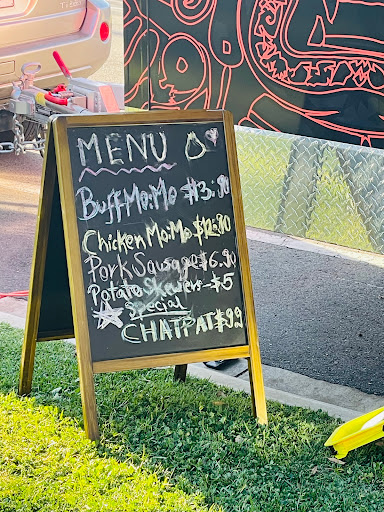 MENU
Buff Mo:Mo $13.90
Chicken Mo:Mo $12.90
Pork Sausage $6.90
Potato Skewers - $5
Special
CHATPAT $9.9